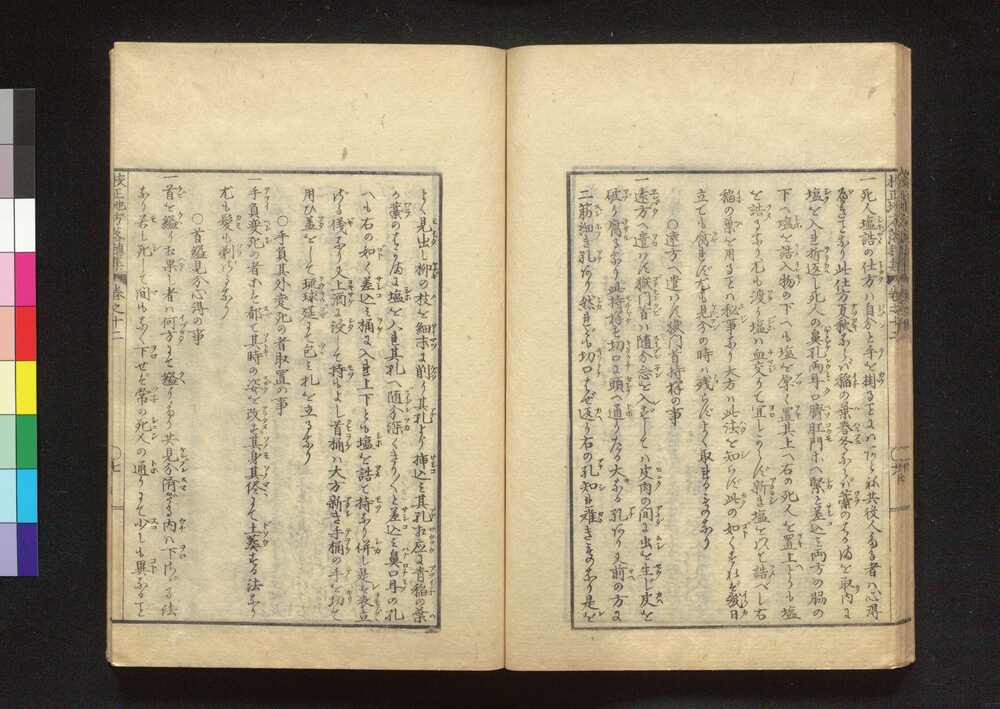 一死人塩詰の仕方ハ自分と手を掛るにハ及ハされ共役人たる者ハ心得
居るへき事なり此仕方夏秋なれハ稲の葉春冬なれハ藁のはかまを取内に
塩を入れ折返し死人の鼻孔両耳口臍肛門等へ緊と差込ミ両方の脇の
下へ塩を詰入物の下へも塩を厚く置其上へ右の死人を置上よりも塩
を詰るなり尤も渡り塩ハ血交りて宜しからす新き塩を以て詰へし右
稲の葉を用ることハ秘事なり大方ハ此法を知らす此の如くすれハ幾日
立ても腐れす尤も見分の時ハ残らすよく取出すものなり
○遠方へ遣ハす獄門首持様の事
一遠方へ遣ハす獄門首ハ随分念を入れすしてハ皮肉の間に虫を生し皮を
破り腐るなり此持様ハ切口に頭へ通りたる大なる孔あり又前の方に
二筋細き孔あり然れとも切口よせ返り右の孔知れ難きものなり是を
よく見出し柳の枝を細末に削り其孔より挿込ミ其孔に応し青稲の葉
か藁のはかまに塩を入れ其孔へ随分深くきりゝと差込ミ鼻口耳の孔
へも右の如く差込ミ桶に入れ上下とも塩を詰て持なり併し是ハ表立
ける儀なり又上酒に浸して持もよし首桶ハ大方新き手桶の手を切て
用ひ蓋をして琉球莚にて包ミ札を立るなり
○手負其外変死の者取置の事
一手負変死の者すへて都て其時の姿を改す其身其侭にて土葬する法なり
尤も髪も剃らぬなり
○首縊見分心得の事
一首を縊り相果し者ハ何方にて縊りても共見分済さる内ハ下ろさる法
なり若し死して間もなく下せハ常の死人の通りにて少しも異なること
校正地方落穂集 巻之十二
○七